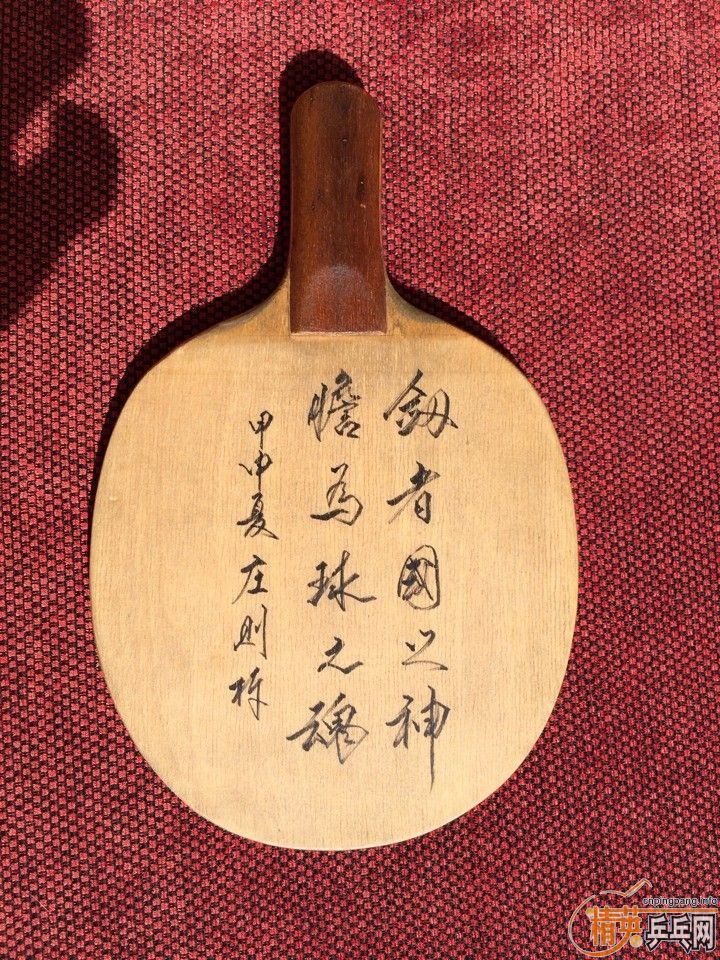 劔者國之神
膽為球之魂
甲申夏 庄则栋
cnpingpang.info
精英乒乓网